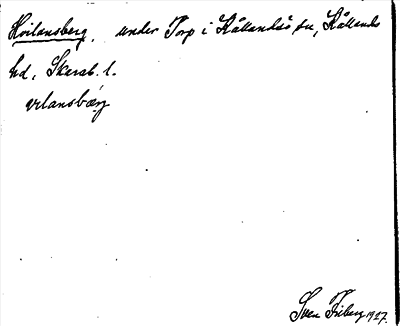 Hvilansberg, under Torp i Kållandsö sn, Kållands
hd, Skarab. l.
vilansbærj
Sven Friberg 1927.